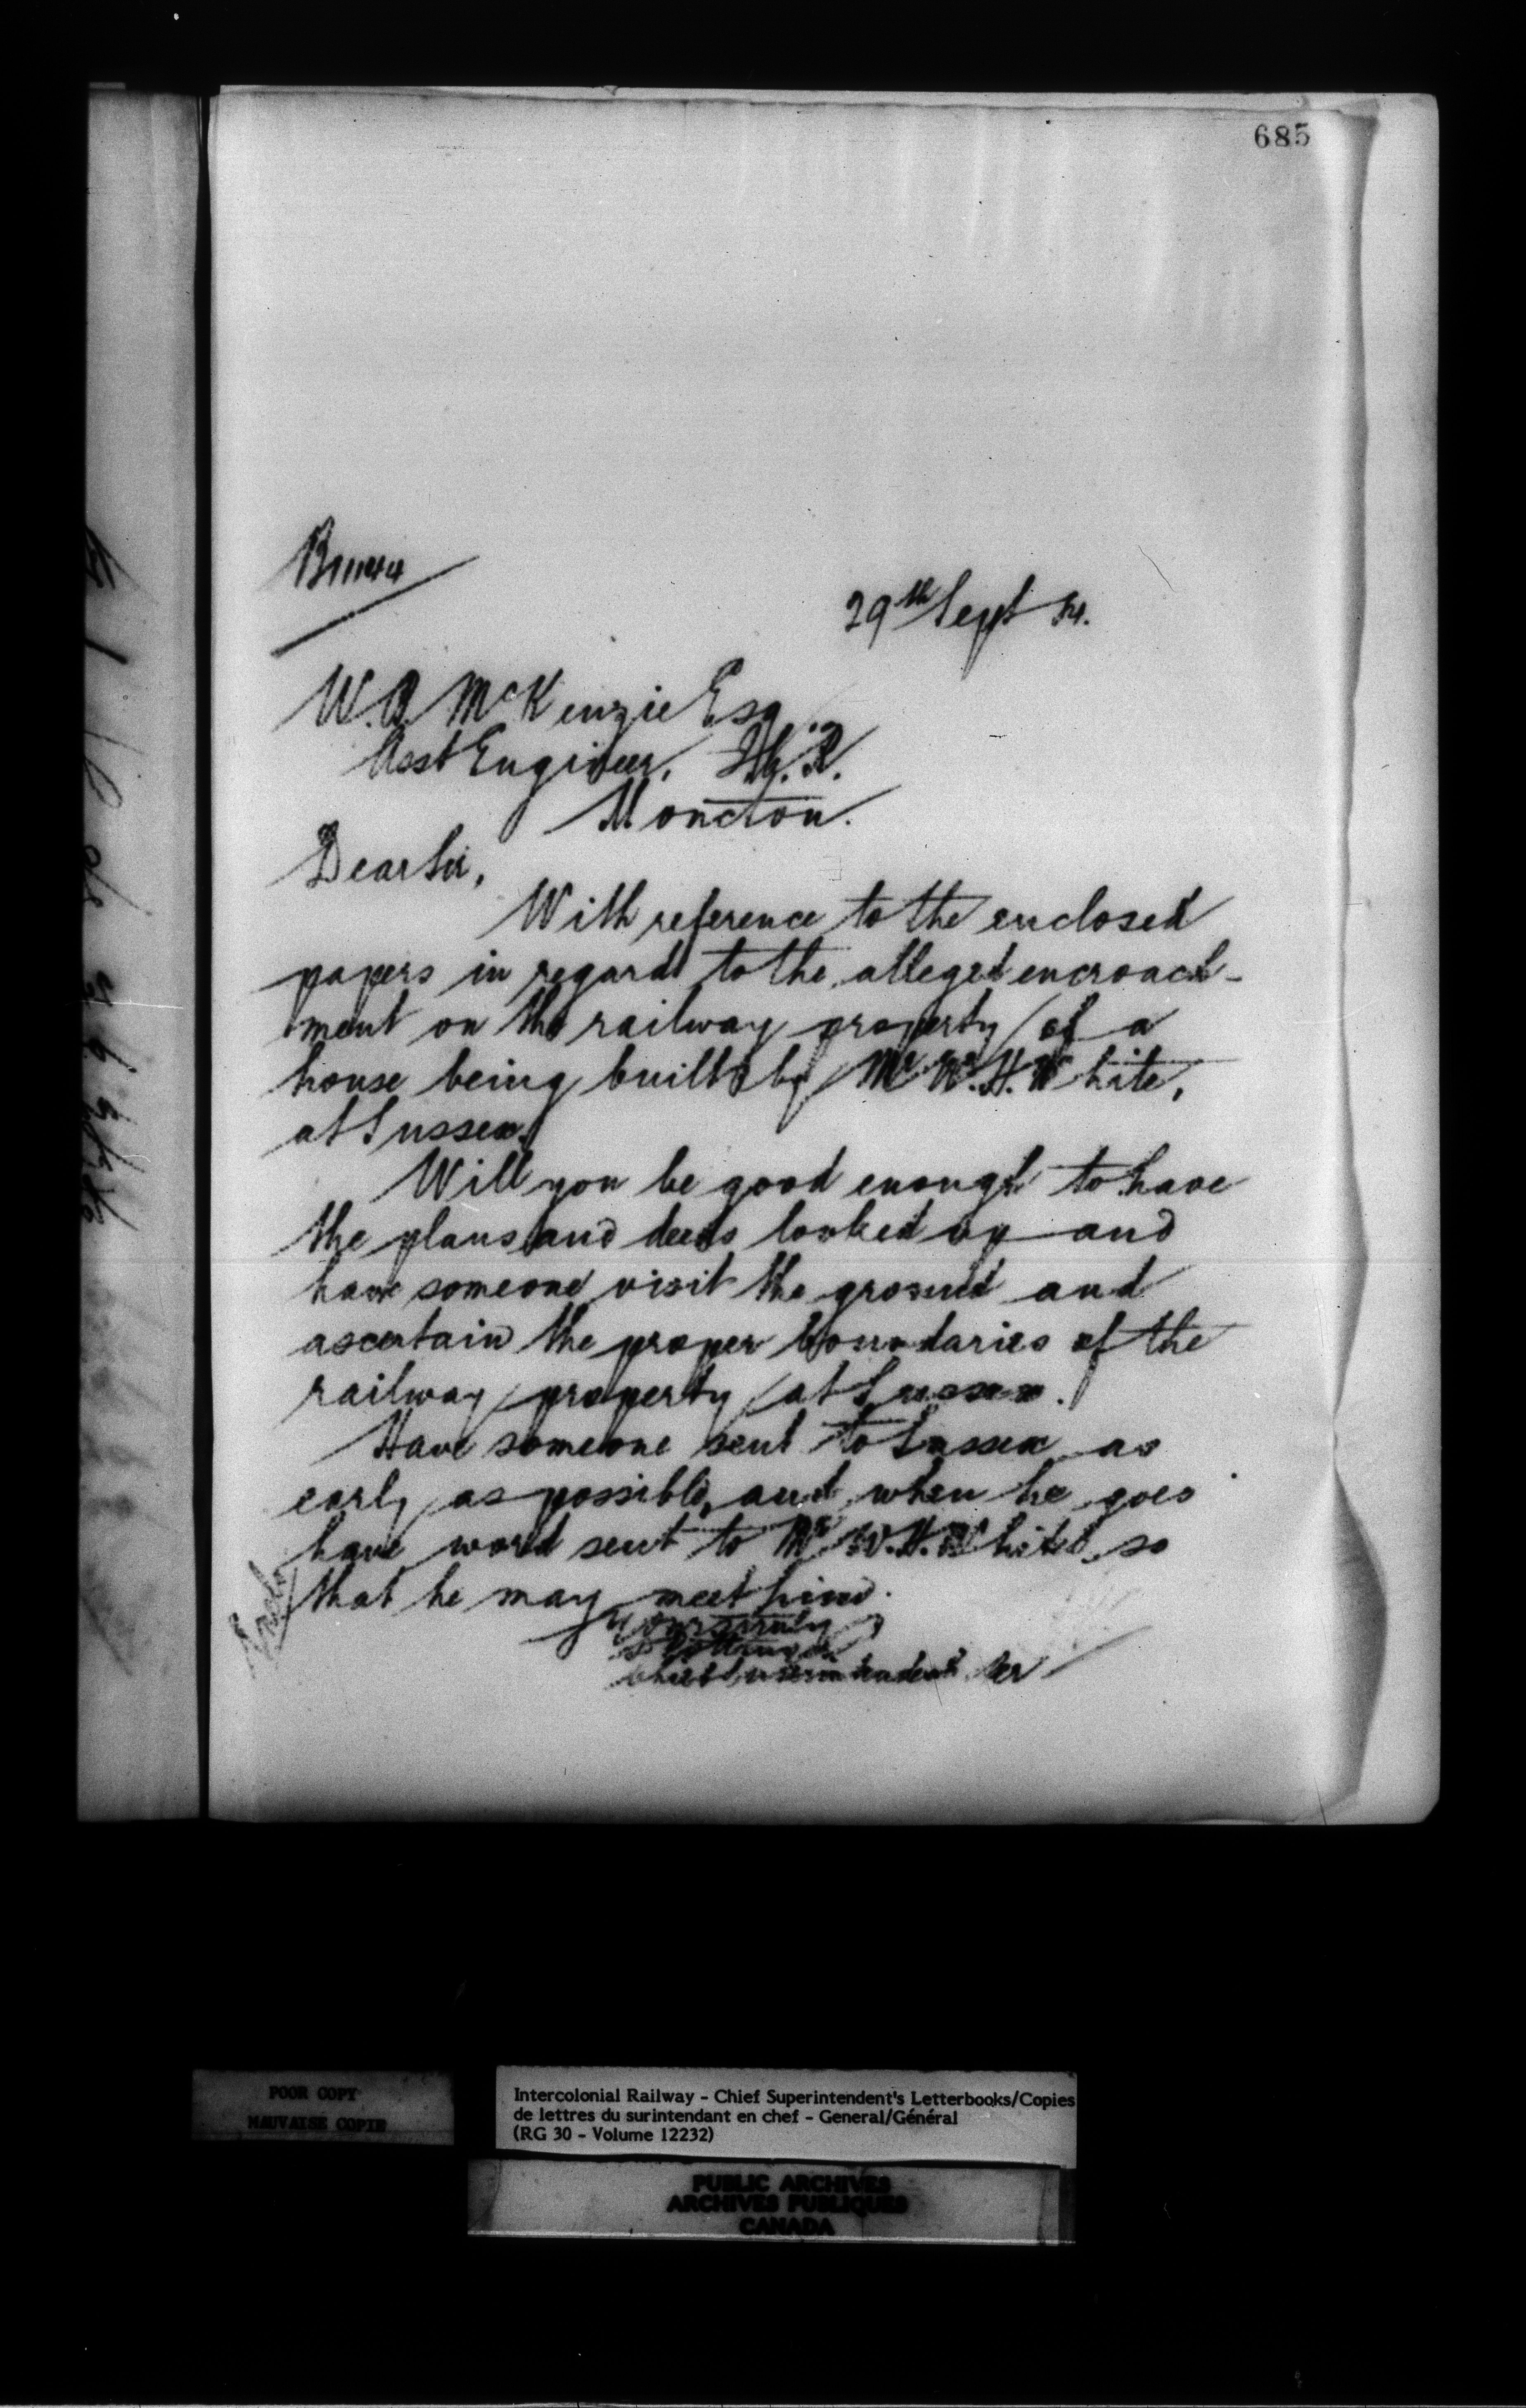 685
29th Sept 84.
W.B. McKenzie Esq
Asst Engineer, I.C.R.
Moncton.
Dear Sir,
With reference to the enclosed
papers in regard to the alleged encroach-
ment on the railway property of a
house being built by Mr W.H. White,
at Sussex.
Will you be good enough to have
the plans and deeds looked up and
have someone visit the ground and
ascertain the proper boundaries of the
railway property at Sussex.
Have someone sent to Sussex as
early as possible, and when he goes
have word sent to Mr W.H. White so
that he may meet him.
Yours truly
D Pottinger
Chief Superintendent
POOR COPY
MAUVAISE COPIE
Intercolonial Railway - Chief Superintendent's Letterbooks/Copies
de lettres du surintendant en chef - General/Général
(RG 30 - Volume 12232)
PUBLIC ARCHIVES
ARCHIVES PUBLIQUES
CANADA